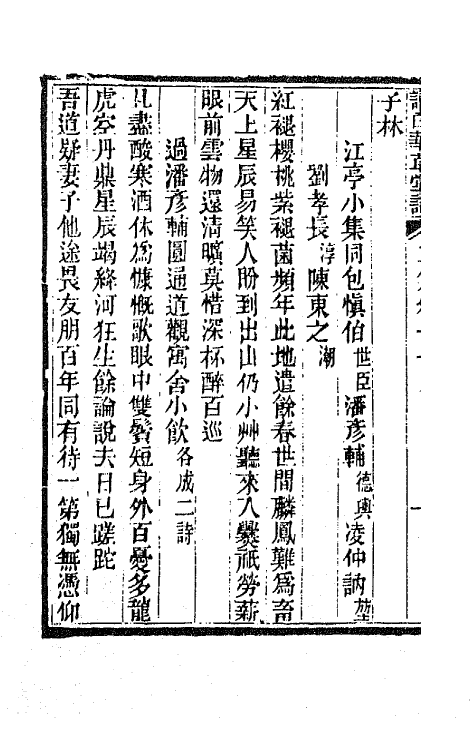 子林
江亭小集同包愼伯世臣潘彥輔德輿凌仲訥堃
劉孝長淳陳東之潮
紅褪櫻桃紫褪菌頻年此地遣餘春世間麟鳳難爲畜
天上星辰易笑人盼到出山仍小艸聽來入爨祇勞薪
眼前雲物還淸曠莫惜深杯醉百巡
過潘彥輔圓通道觀寓舍小飮各成二詩
札盡酸寒酒休爲慷慨歌眼中雙鬢短身外百憂多龍
虎空丹鼎星辰竭絳河狂生餘論說夫日已蹉跎
吾道疑妻子他途畏友朋百年同有待一第獨無憑仰